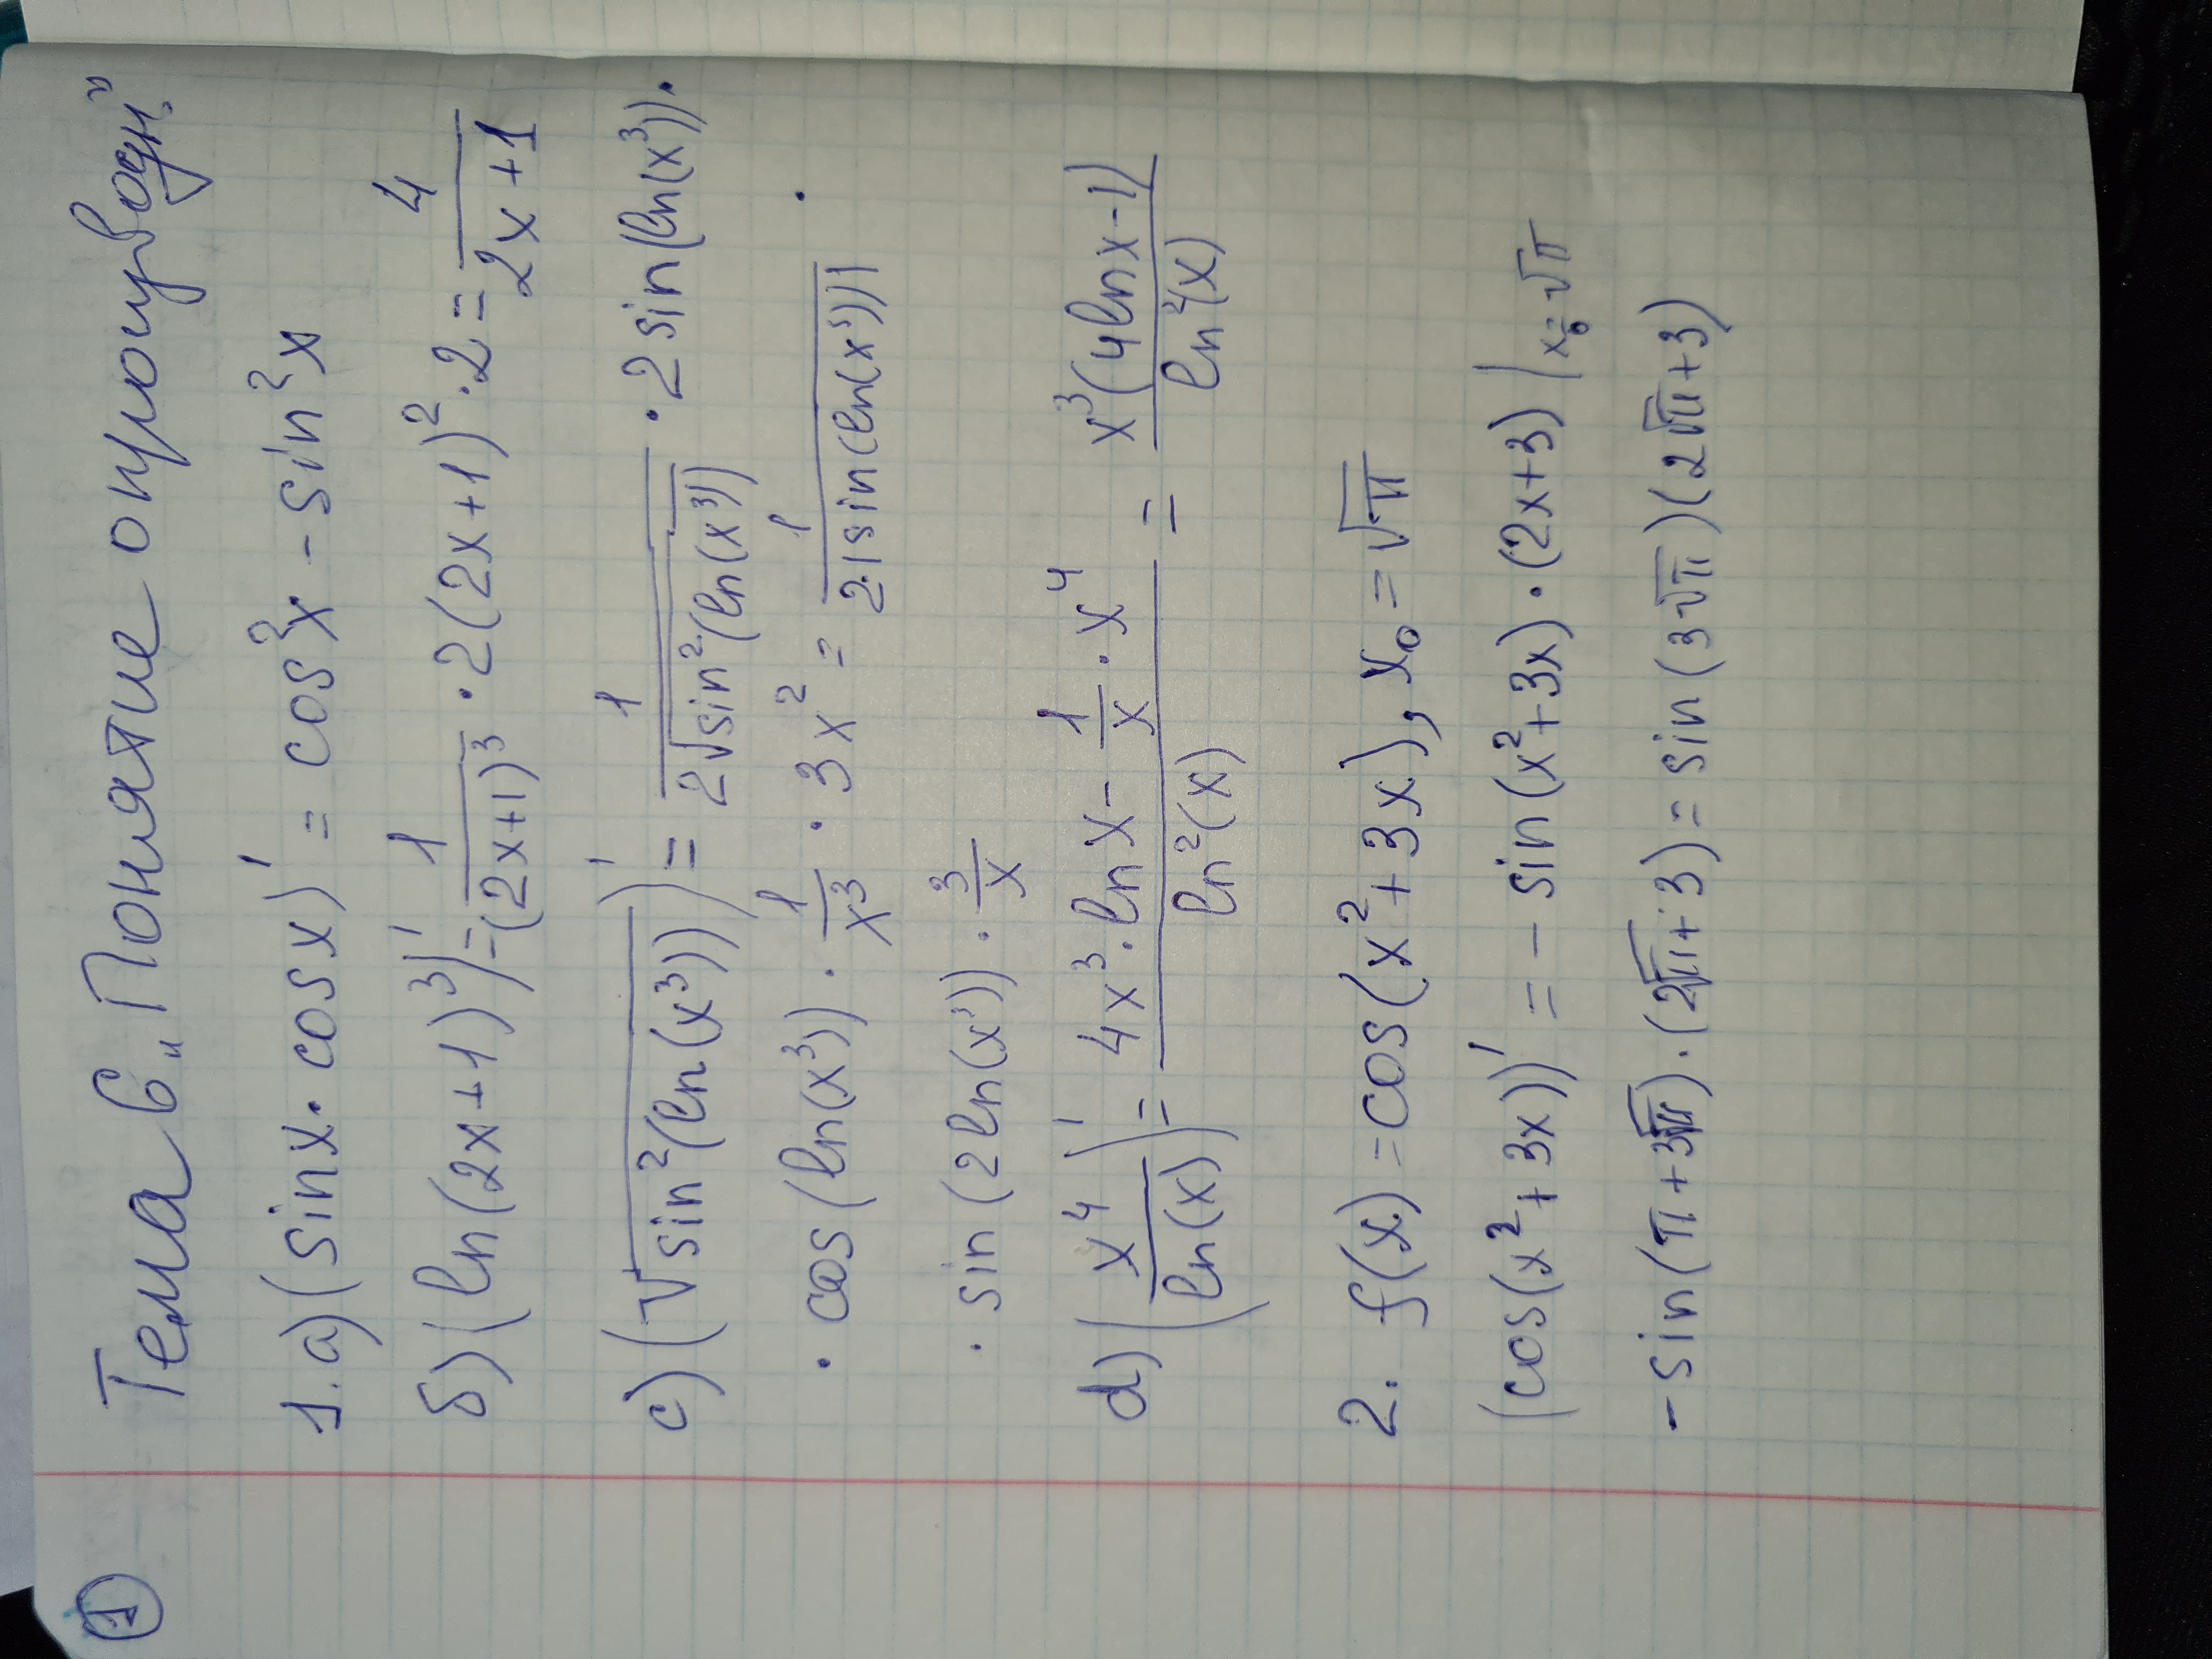 1
Тема 6 „Понятие о производн."
1. а) (sinx · cosx)' = cos²x - sin²x
б) (ln(2x+1)³)' = 1/(2x+1)³ · 2(2x+1)² · 2 = 4/(2x+1)
c) (√(sin²(ln(x³))))' = 1/(2√(sin²(ln(x³)))) · 2sin(ln(x³)) ·
· cos(ln(x³)) · 1/x³ · 3x² = 1/(2·|sin(ln(x³))|) ·
· sin(2ln(x³)) · 3/x
d) (x⁴/ln(x))' = (4x³ · lnx - 1/x · x⁴)/ln²(x) = x³(4lnx-1)/ln²(x)
2. f(x) = cos(x²+3x), x₀ = √π
(cos(x²+3x))' = - sin(x²+3x) · (2x+3) |x₀=√π
- sin(π+3√π) · (2√π+3) = sin(3√π)(2√π+3)